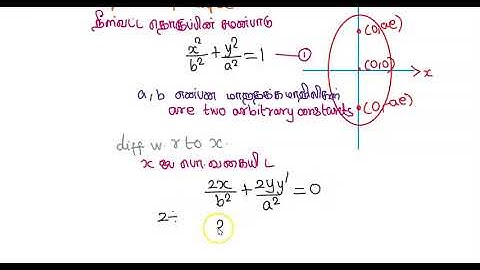 நீள்வட்ட தொகுப்பின் சமன்பாடு
x²/b² + y²/a² = 1 — ①
(0, ae)
(0,0)
x
(0, -ae)
a, b என்பன மாறத்தக்க மாறிலிகள்
are two arbitrary constants
diff w. r to x.
x ஐ பொ. வகையிட
2x/b² + 2yy'/a² = 0
2÷